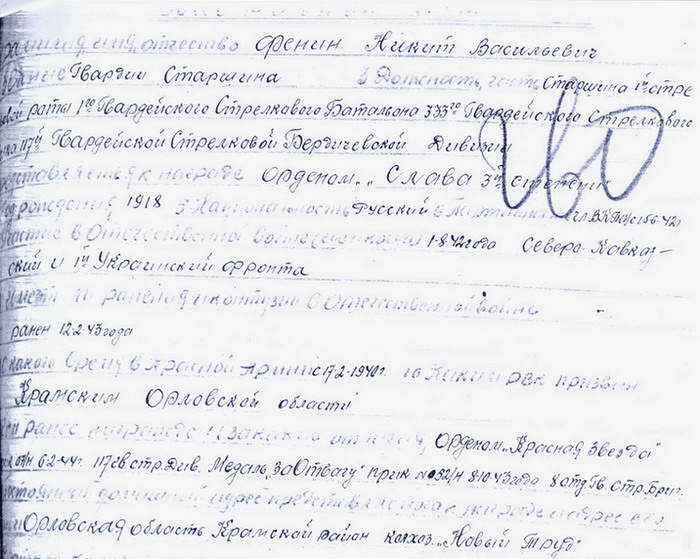 Наградной лист
фамилия, имя, отчество Фенин Никит Васильевич
звание Гвардии Старшина 3 Должность, часть Старшина 1ой стре
вой роты 1го Гвардейского Стрелкавого Батальона 333го Гвардейского Стрелкового
117й Гвардейской Стрелковой Бердичевской Дивизии
представляется к награде Орденом „Слава 3й степени"
Год рождения 1918 5 Национальность Русский 6 Партийность чл. ВКП(б) с 15 6-42г
Участие в Отечественной войне (где, когда) 1-8-42 года Северо-Кавказ-
ский и 1й Украинский фронта
Имеет ли ранения и контузии в Отечественной войне
ранен 12-2-43 года
С какого времени в Красной Армии с 17-2-1940г. 10 Каким РВК призван
Крамским Орловской области
Чем ранее награжден (за какие отличия) Орденом „Красная Звезда"
6-2-44г. 117 гв. стр. Див. Медаль „За Отвагу" прик №052/н 8-10-43 года 8 отд. Гв. Стр. Бриг.
Постоянный домашний адрес представляемого к награде и адрес его
Орловская область Крамской район колхоз „Новый Труд"